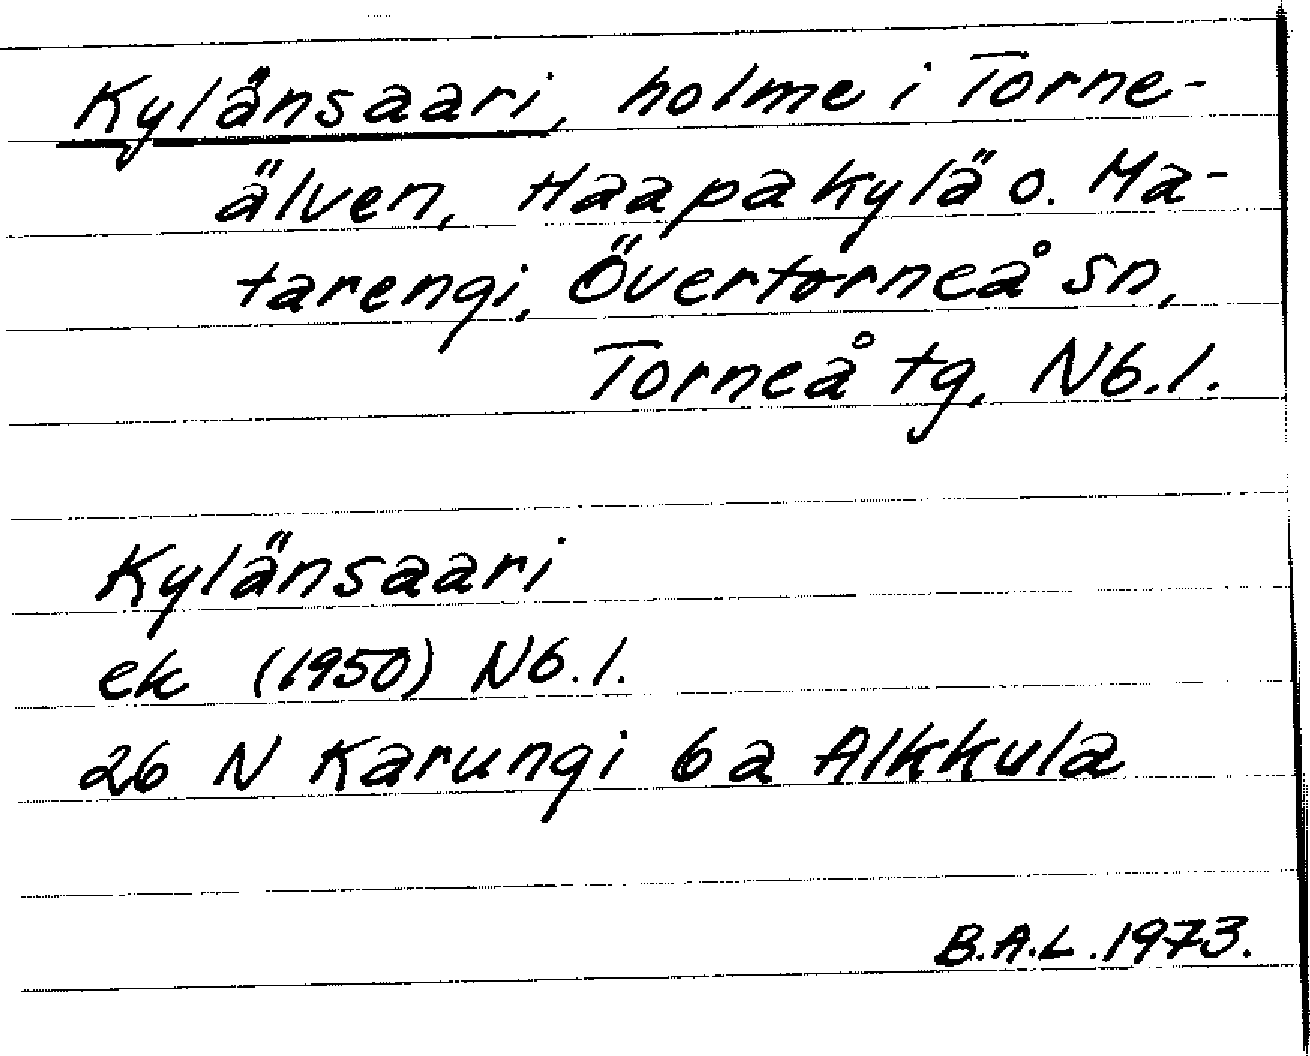 Kylänsaari, holme i Torne-
älven, Haapakylä o. Ma-
tarengi, Övertorneå sn,
Torneå tg, Nb.l.
Kylänsaari
ek (1950) Nb.l.
26 N Karungi 6a Alkkula
B.A.L. 1973.